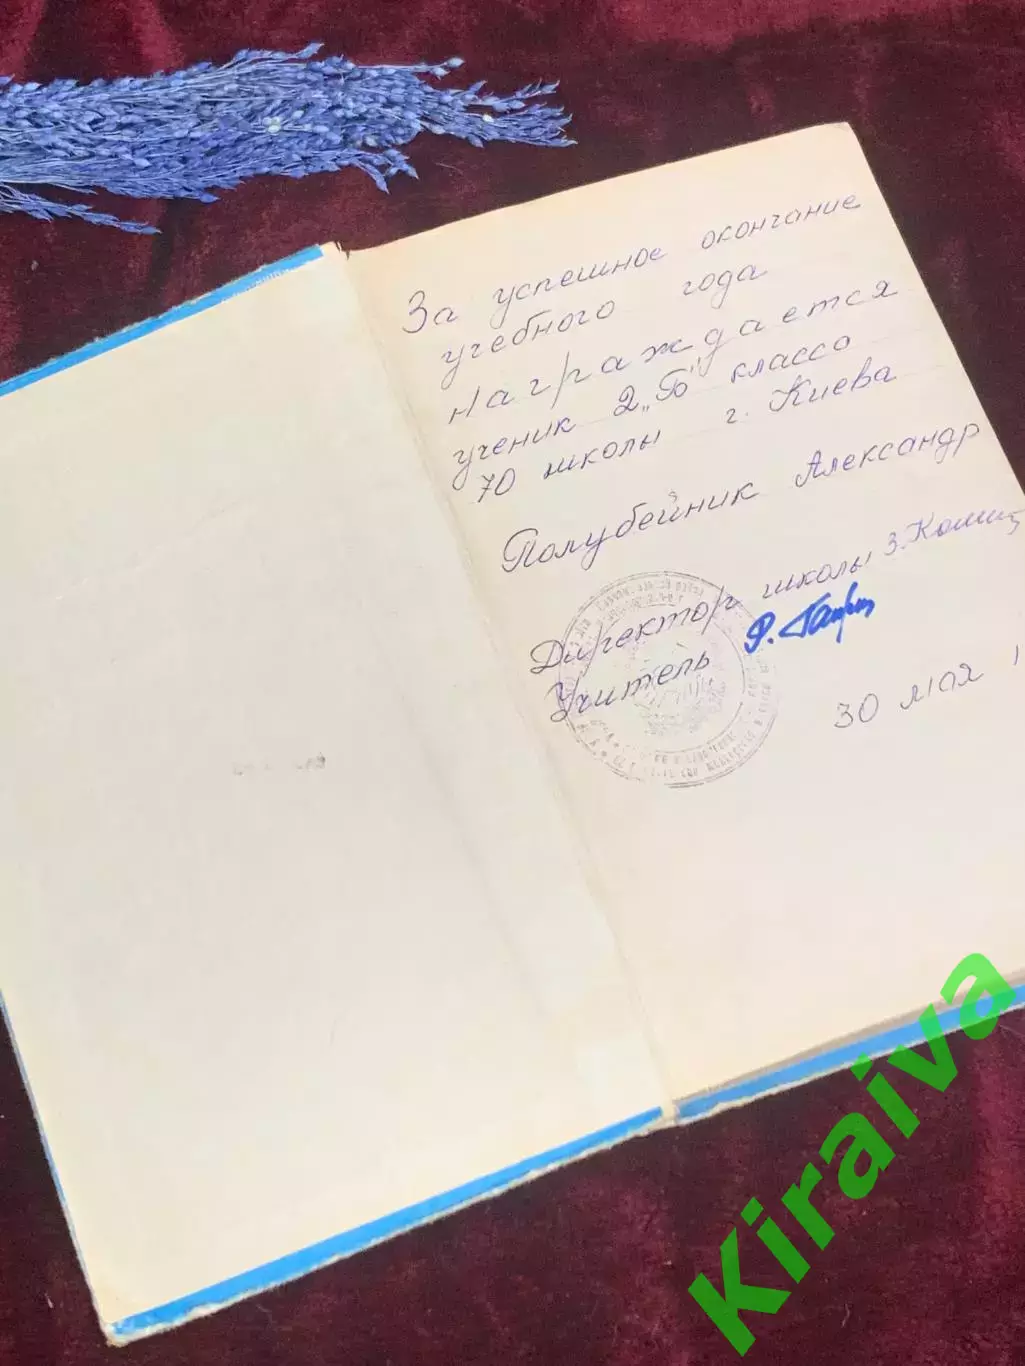 За успешное окончание
учебного года
награждается
ученик 2 „Б" класса
70 школы г. Киева
Полубейник Александр
Директор школы
Учитель
30 мая
Kiraiva